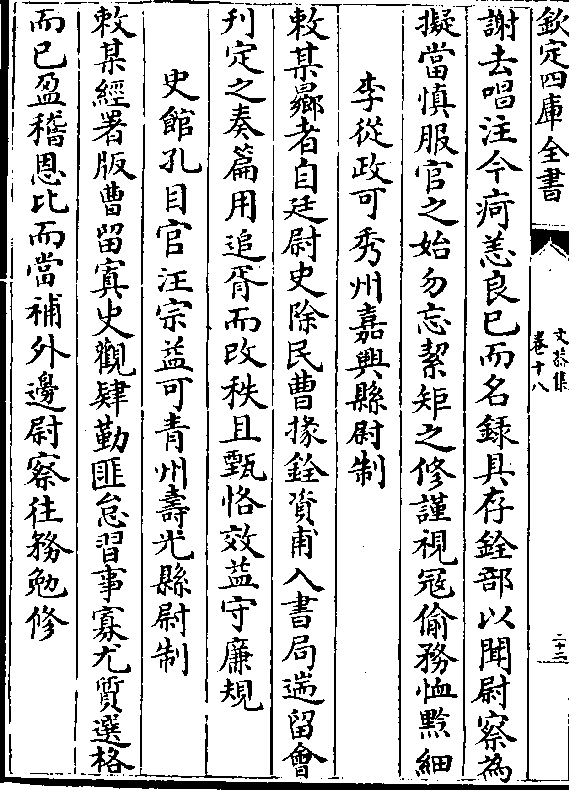 欽定四庫全書
文恭集
卷十八
二十三
謝去唱注今疴恙良已而名錄具存銓部以聞尉察為
擬當慎服官之始勿忘絜矩之修謹視冦偷務恤黔細
李從政可秀州嘉興縣尉制
敕某曏者自廷尉史除民曹掾銓資甫入書局遄留會
刋定之奏篇用追胥而改秩且甄恪效益守廉規
史館孔目官汪宗益可青州壽光縣尉制
敕某經署版曹留寘史觀肄勤匪怠習事寡尤質選格
而已盈稽恩比而當補外邊尉察往務勉修